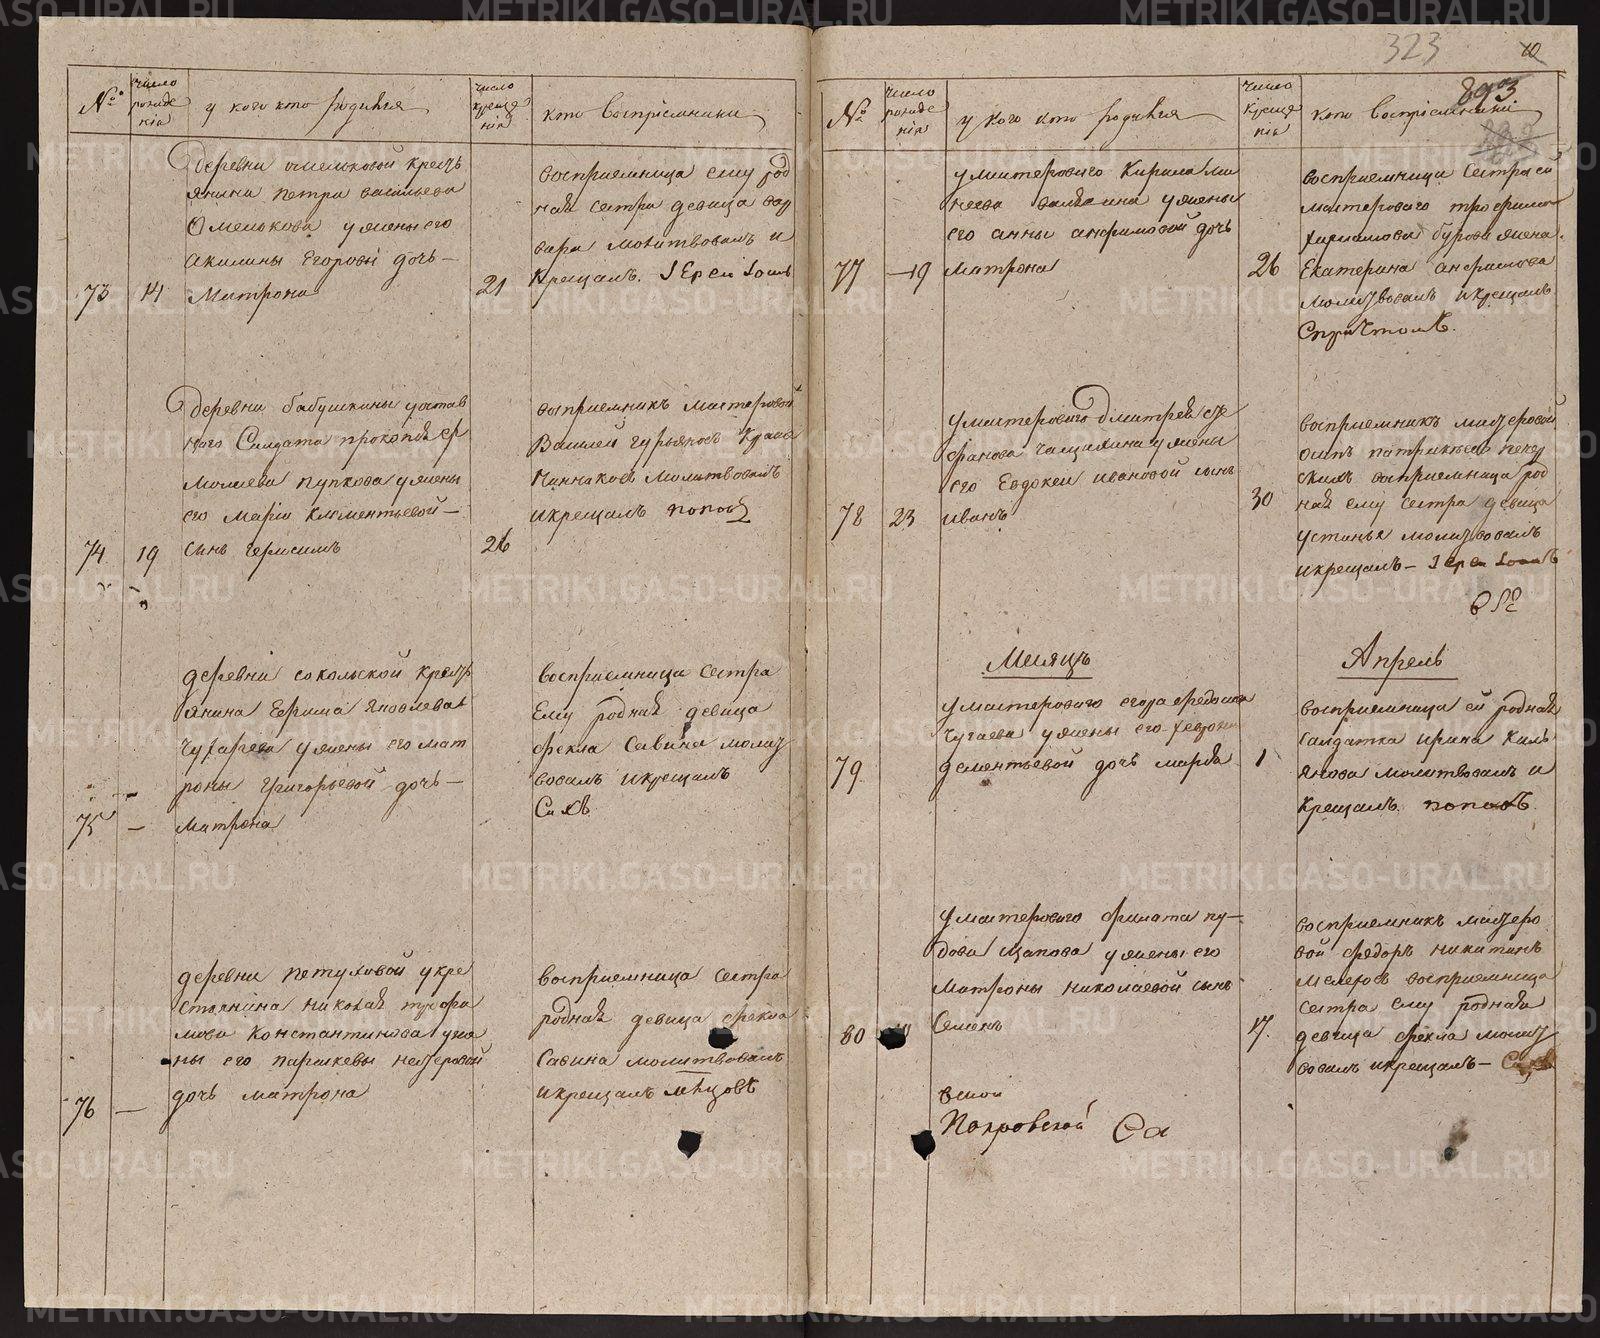 323
10
893
№
число рожде нія
у кого кто родился
число креще нія
кто воспріемники
деревни омельковой кресть
янина петра васильева
Омелькова у жены его
акилины Егоровы дочь —
73 14 Матрона 21
восприемница ему род
ная сестра девица вар
вара молитвовалъ и
крещалъ. Іереи Іоанъ
деревни бабушкины у отстав
ного Салдата прокопья ер
молаева пупкова у жены
его Маріи Климентьевой —
74 19 сынъ герасимъ 26
восприемникъ мастеровой
Василей гурьяновъ
молитвовалъ
и крещалъ попов
деревни сокольской кресть
янина Ефима Яковлева
у жены его мат
роны григорьевой дочь —
75 — Матрона
восприемница сестра
Ему родная девица
фекла Савина молит
вовалъ и крещалъ
Сахв
деревни петуховой у кре
стьянина николая трофи
мова Константинова у же
ны его парасковьи нестеровой
76 — дочь матрона
восприемница сестра
родная девица фекла
Савина молитвовалъ
и крещалъ
№
число рожде нія
у кого кто родился
число креще нія
кто воспріемники
у мастерового Кирила ми
неева у жены
его анны анфимовой дочь
77 — 19 матрона 26
восприемница сестра ей
мастероваго трофима
харламова бурова жена
Екатерина анфимова
молитвовалъ и крещалъ
Спричтомъ.
у мастерового Дмитрея сте
фанова чащихина у жены
его Евдокеи ивановой сынъ
78 23 иванъ 30
восприемникъ мастеровой
осипъ патрикѣевъ печер
скихъ восприемница род
ная ему сестра девица
устинья молитвовалъ
и крещалъ — Іереи Іоанъ
Месяцъ Апрель
у мастерового егора федосиева
чугаева у жены его февронии
79 дементьевой дочь марья 1
восприемница ей родная
салдатка ирина Касъ
янова молитвовалъ и
крещалъ поповъ
у мастерового филата пу—
дова щапова у жены его
матроны николаевой сынъ
80 Семенъ 17.
восприемникъ мастеро
вой федоръ никитинъ
мелеховъ восприемница
сестра ему родная
девица фекла молит
вовалъ и крещалъ — Сахв
Покровской Са
METRIKI.GASO-URAL.RU